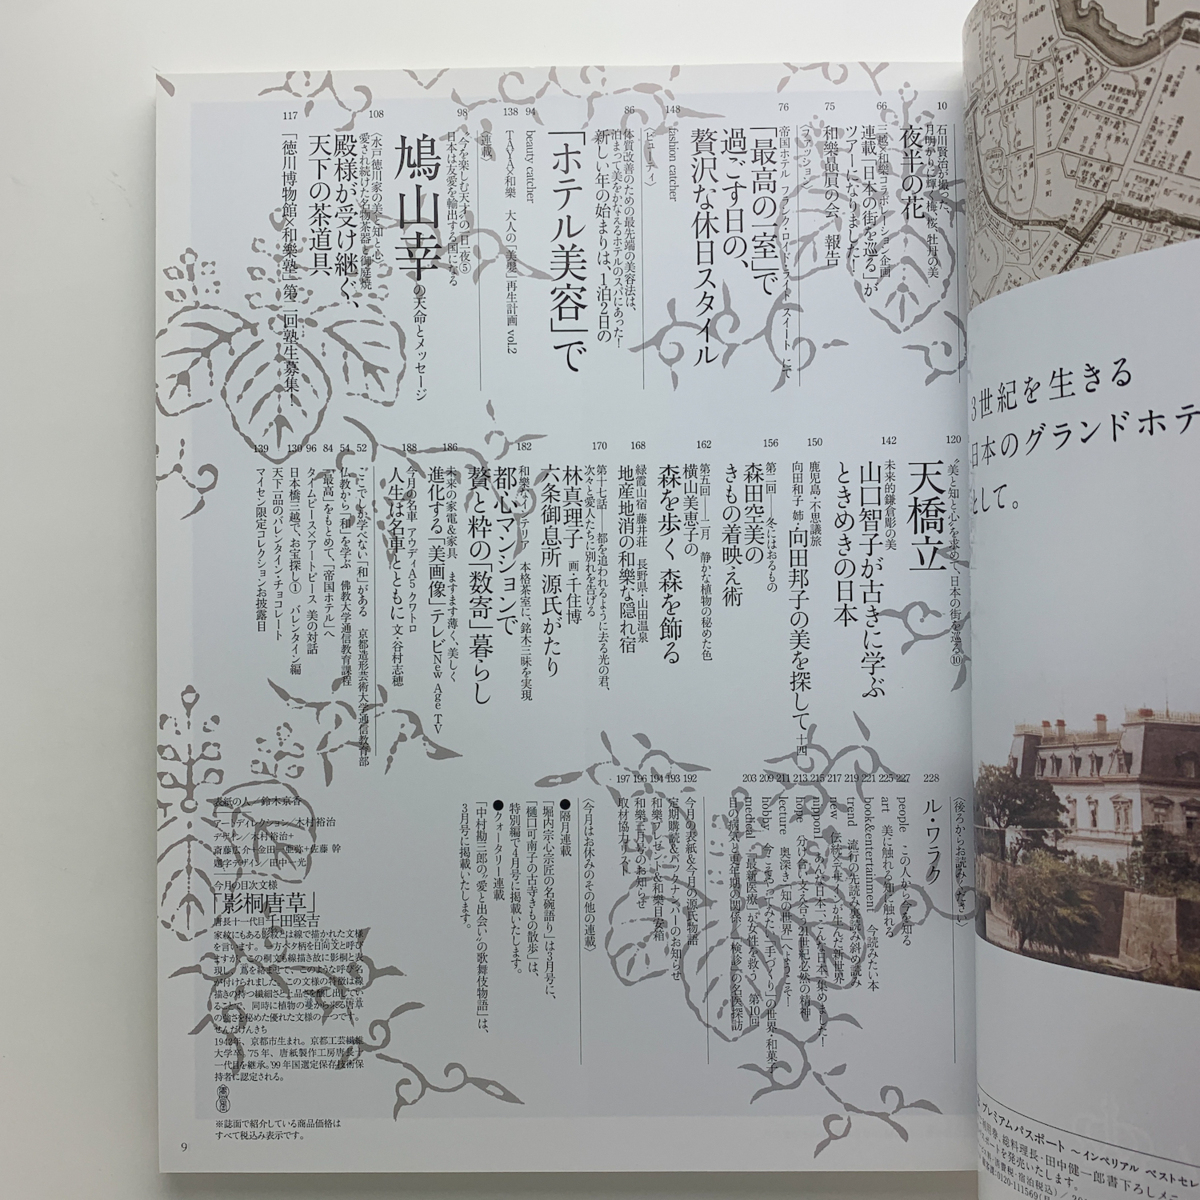 10
石川賢治が撮った、
月明かりに輝く梅、桜、牡丹の美
夜半の花
66
三越×和樂コラボレーション企画
連載「日本の街を巡る」が
ツアーになりました！
75
和樂贔屓の会、報告
〈ファッション〉
76
帝国ホテル フランク・ロイド・ライト スイート にて
「最高の一室」で
過ごす日の、
贅沢な休日スタイル
148
fashion catcher
〈ビューティ〉
86
体質改善のための最先端の美容法は、
泊まって美をかなえるホテルのスパにあった！
新しい年の始まりは、1泊2日の
「ホテル美容」で
94
beauty catcher
138
TAYA×和樂 大人の「美髪」再生計画 vol.2
〈連載〉
98
“今を楽しむ天才”の一日一夜⑤
日本は友愛を輸出する国になる
鳩山幸の天命とメッセージ
108
〈水戸徳川家の美と知と心〉
愛され続けた名物茶器と御庭焼
殿様が受け継ぐ、
天下の茶道具
117
「徳川博物館×和樂塾」第二回塾生募集！
120
“美と知と心を求めて、日本の街を巡る⑩
天橋立
142
未来的鎌倉彫の美
山口智子が古きに学ぶ
ときめきの日本
150
鹿児島・不思議旅
向田和子 姉・向田邦子の美を探して 十四
156
第二回──冬にはおるもの
森田空美の
きもの着映え術
162
第五回──二月 静かな植物の秘めた色
横山美恵子の
森を歩く 森を飾る
168
緑霞山宿 藤井荘 長野県・山田温泉
地産地消の和樂な隠れ宿
170
第十七話──都を追われるように去る光の君、
次々と愛人たちに別れを告げる
林真理子 画・千住博
六条御息所 源氏がたり
182
和樂なインテリア 本格茶室に、銘木三昧を実現
都心マンションで
贅と粋の「数寄」暮らし
186
未来の家電&家具 ますます薄く、美しく
進化する「美画像」テレビ New Age TV
188
今月の名車 アウディA5クワトロ
人生は名車とともに 文・谷村志穂
52
ここでしか学べない「和」がある 京都造形芸術大学通信教育部
54
仏教から「和」を学ぶ 佛教大学通信教育課程
84
「最高」をもとめて、「帝国ホテル」へ
96
タイムピース×アートピース 美の対話
130
日本橋三越で、お宝探し① バレンタイン編
天下一品のバレンタインチョコレート
139
マイセン限定コレクションお披露目
〈後ろからお読みください〉
228
ル・ワラク
227
people この人から今を知る
225
art 美に触れる知に触れる
221
book&entertainment 今読みたい本
219
trend 流行の先読み裏読み斜め読み
217
new 伝統×デザインが生んだ新世界
215
nippon1 あんな日本一、こんな日本一集めました！
213
hope 分け合い支え合う21世紀必然の精神
211
lecture 奥深き「知の世界」へようこそ！
209
hobby 今こそやってみたい「手づくり」の世界・和菓子
203
medical 「最新医療」が女性を救う 第10回
目の病気と更年期の関係と「検診」の名医探訪
192
今月の表紙&今月の源氏物語
193
定期購読&バックナンバーのお知らせ
194
和樂プレゼント&和樂目安箱
196
和樂三月号のお知らせ
197
取材協力リスト
〈今月はお休みのその他の連載〉
●隔月連載
「堀内宗心宗匠の名碗語り」は3月号に、
「樋口可南子の古寺きもの散歩」は、
特別編で4月号に掲載いたします。
●クォータリー連載
「中村勘三郎の“愛と出会い”の歌舞伎物語」は、
3月号に掲載いたします。
表紙の人／鈴木京香
アートディレクション／木村裕治
デザイン／木村裕治＋
齋藤広介＋金田一亜弥＋佐藤 幹
題字デザイン／田中一光
今月の目次文様
「影桐唐草」
唐長十一代目 千田堅吉
家紋にもある影紋とは線で描かれた文様
を言います。一方ベタ柄を日向文と呼び
ますが、この桐文も線描き故に影桐と表
現し、蔦を絡ませて、このような呼び名
が付けられました。この文様の特徴は線
描きの持つ繊細さと上品さを醸し出してい
ることで、同時に植物の蔓から来る唐草
の強さを秘めた優れた文様の一つです。
せんだけんきち
1942年、京都市生まれ。京都工芸繊維
大学卒。’75年、唐紙製作工房唐長十
一代目を継承。’99年国選定保存技術保
持者に認定される。
※誌面で紹介している商品価格は
すべて税込み表示です。
9
3世紀を生きる
日本のグランドホテ
として。
プレミアムパスポート ～インペリアル ベストセレ
総料理長・田中健一郎書下ろしメニ
ポートを発売いたします。